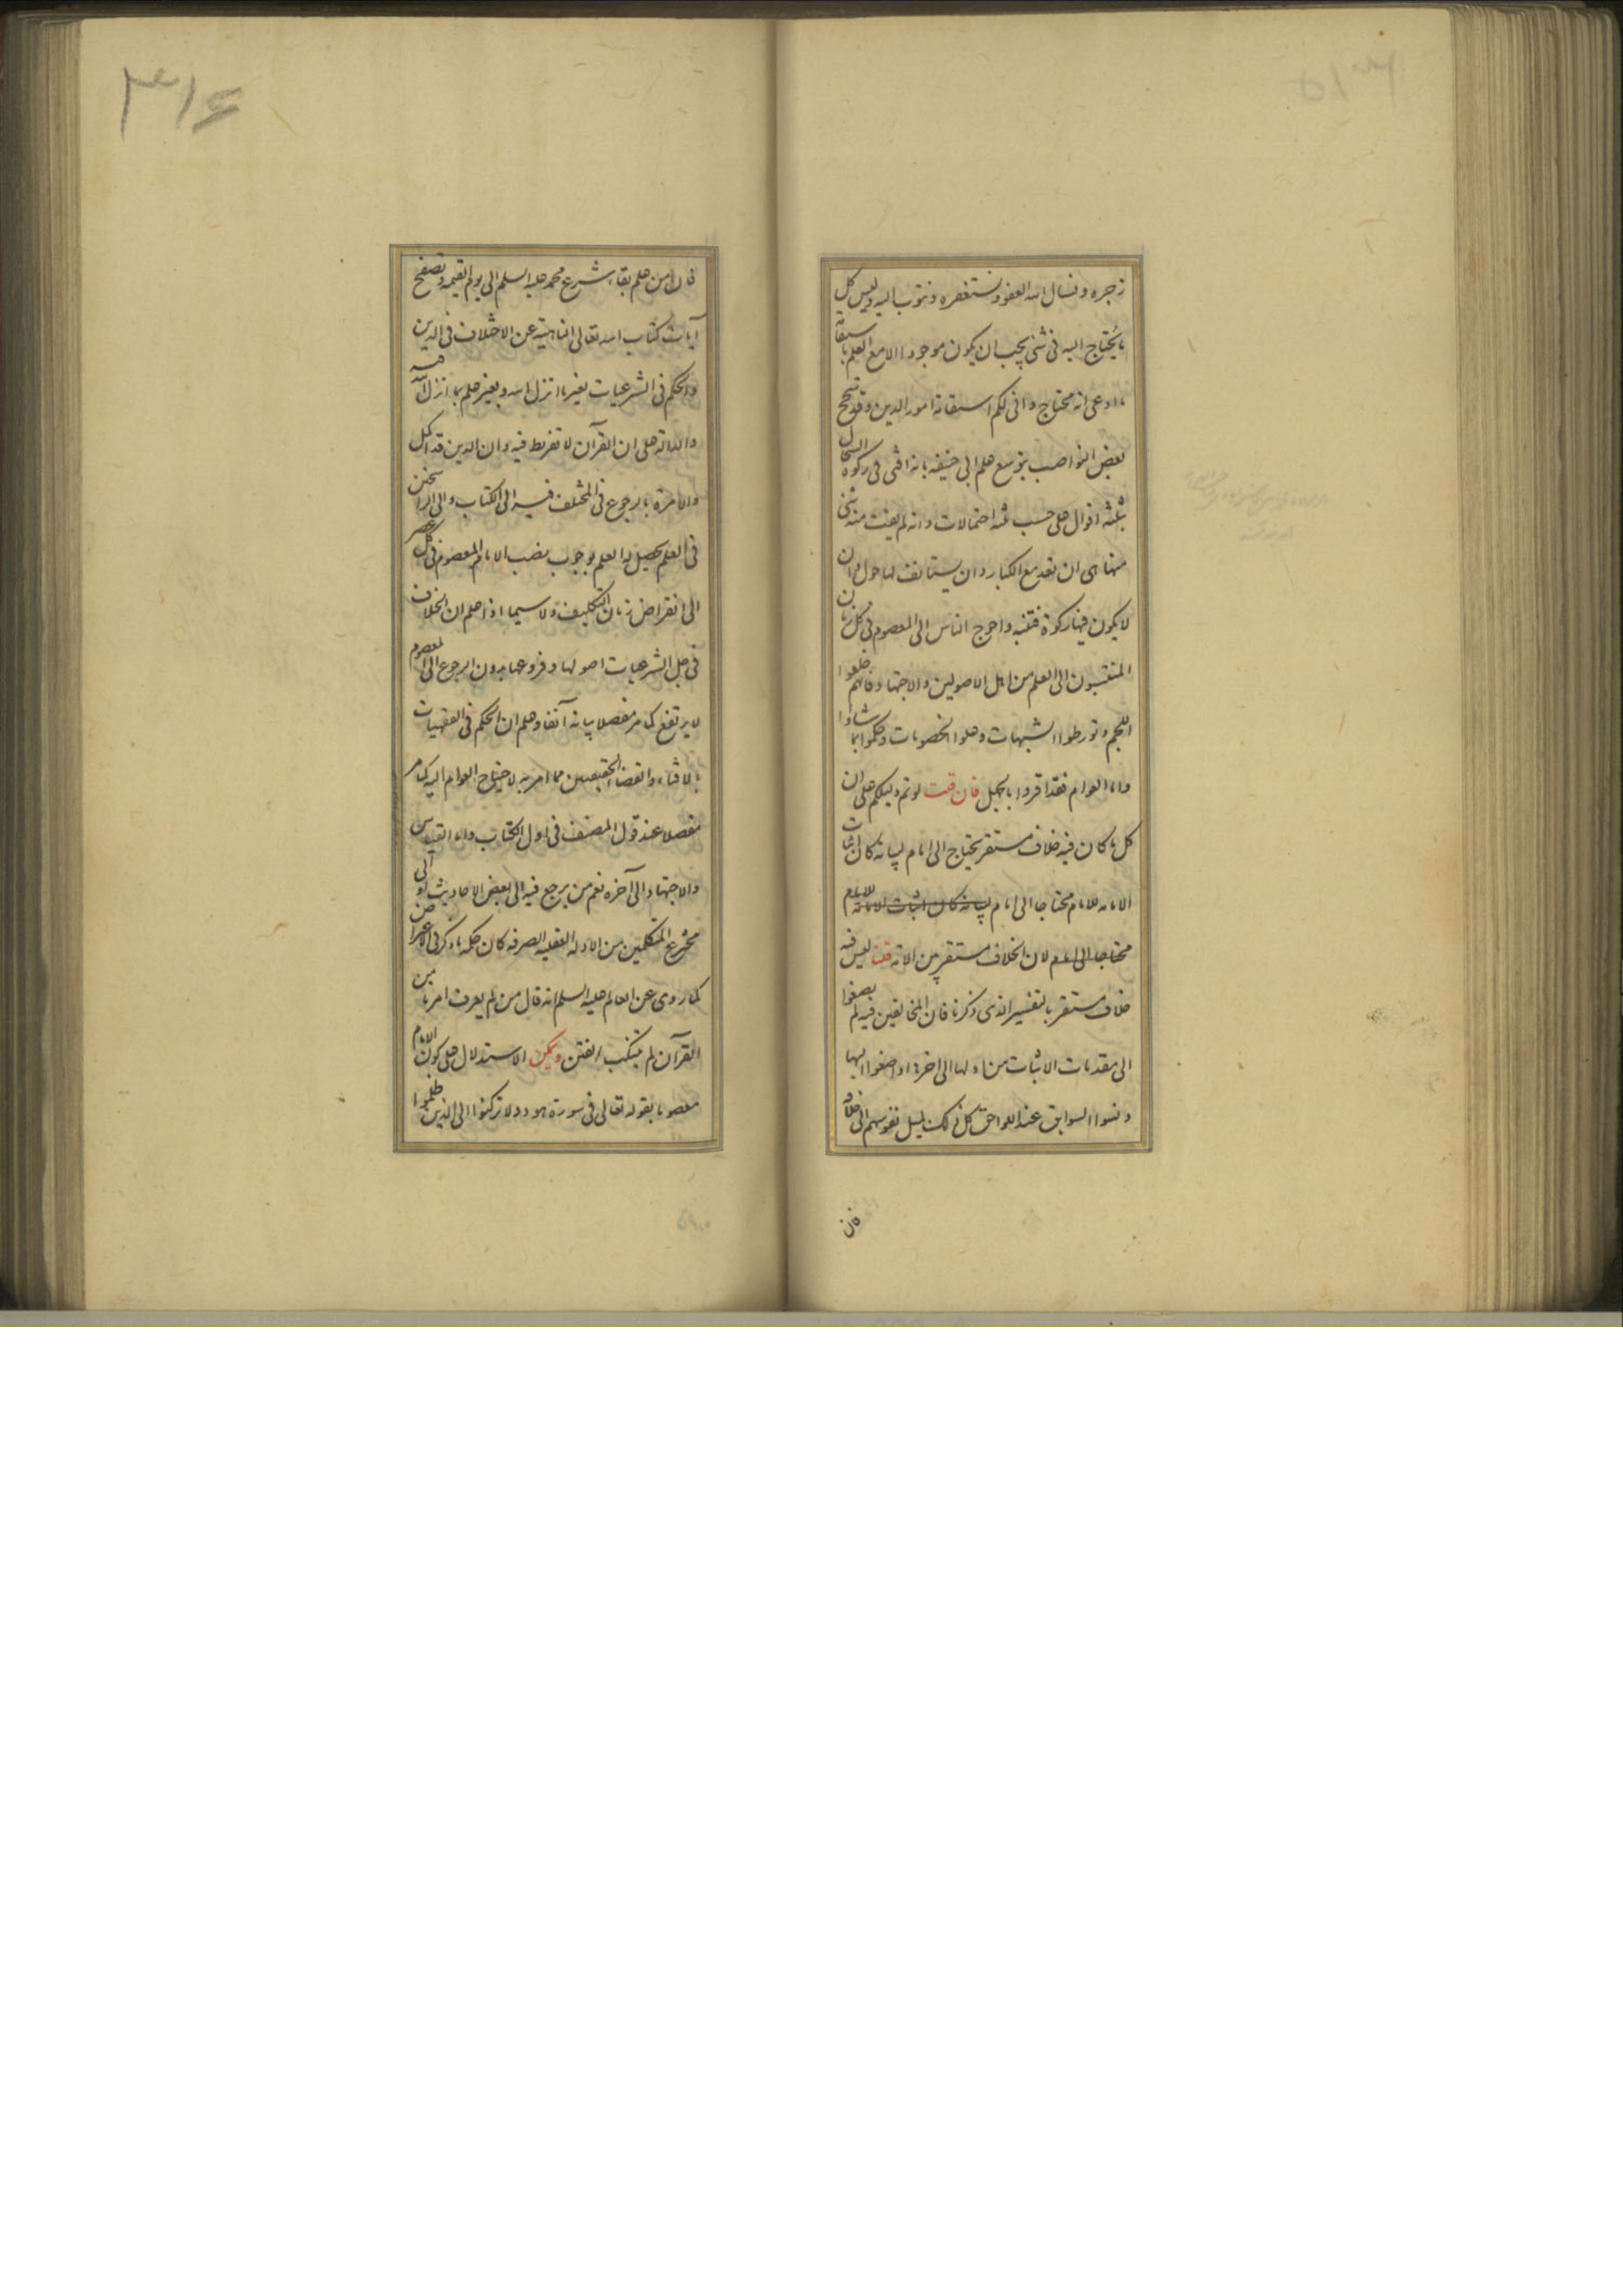 ٣١٥
زجره ونسال الله العفو ونستغفره ونتوب اليه وليس كل
ما يحتاج اليه فى شئ يجب ان يكون موجودا الا مع العلم باستقامة
ما ادعى انه محتاج وانى لكم استقامة امور الدين وقد تبجح
بعض النواصب بتوسع علم ابى حنيفه بانه افتى فى زكوة السخال
بثلثه اقوال على حسب ثلثه احتمالات وانه لم يفت منه شئ
منها هى ان تعد مع الكبار وان يستانف لها حول وان
لا يكون فيها زكوة فتنبه واحوج الناس الى المعصوم فى كل زمان
المنتسبون الى العلم من اهل الاصولين والاجتهاد فانهم خلعوا
اللجم وتورطوا الشبهات وحلوا الخصومات وحكموا بما شاؤا
واما العوام فقد اقروا بالجهل فان قلت لو تم دليلكم على ان
كل ما كان فيه خلاف مستقر يحتاج الى امام لبيانه كان اثبات
الامامه للامام محتاجا الى امام لبيانه كان اثبات الامامة للامام
محتاجا الى امام لان الخلاف مستقر من الامة قلنا ليس فيه
خلاف مستقر بالتفسير الذى ذكرنا فان المخالفين فيه لم يصغوا
الى مقدمات الاثبات من اولها الى اخرها او اصغوا اليها
ونسوا السوابق عند اللواحق كل ذلك لميل نفوسهم الى خلافه
فان
٣١۶
فان من علم بقاء شرع محمد عليه السلم الى يوم القيمه وتصفح
آيات كتاب الله تعالى الناهية عن الاختلاف فى الدين
والحكم فى الشرعيات بغير ما انزل الله وبغير علم بما انزل الله فيه
والدالة على ان القرآن لا تفريط فيه وان الدين قد اكمل
والامرة بالرجوع فى المختلف فيه الى الكتاب والى الراسخين
فى العلم يحصل له العلم بوجوب نصب الامام المعصوم فى كل عصر
الى انقراض زمان التكليف ولا سيما اذا علم ان الخلاف
فى جل الشرعيات اصولها وفروعها بدون الرجوع الى المعصوم
لا يرتفع كما مر مفصلا بيانه آنفا وعلم ان الحكم فى الفقهيات
بالافتاء والقضاء الحقيقيين مما امر به لاحتياج العوام اليه كما مر
مفصلا عند قول المصنف فى اول الكتاب واما القياس
والاجتهاد الى آخره نعم من يرجع فيه الى بعض الاحاديث او الى
مخترع المتكلمين من الادلة العقليه الصرفه كان حكمه ما ذكر فى الاعتراض
كما روى عن العالم عليه السلم انه قال من لم يعرف امرنا من
القرآن لم يتنكب الفتن ويمكن الاستدلال على كون الامام
معصوما بقوله تعالى فى سورة هود ولا تركنوا الى الذين ظلموا